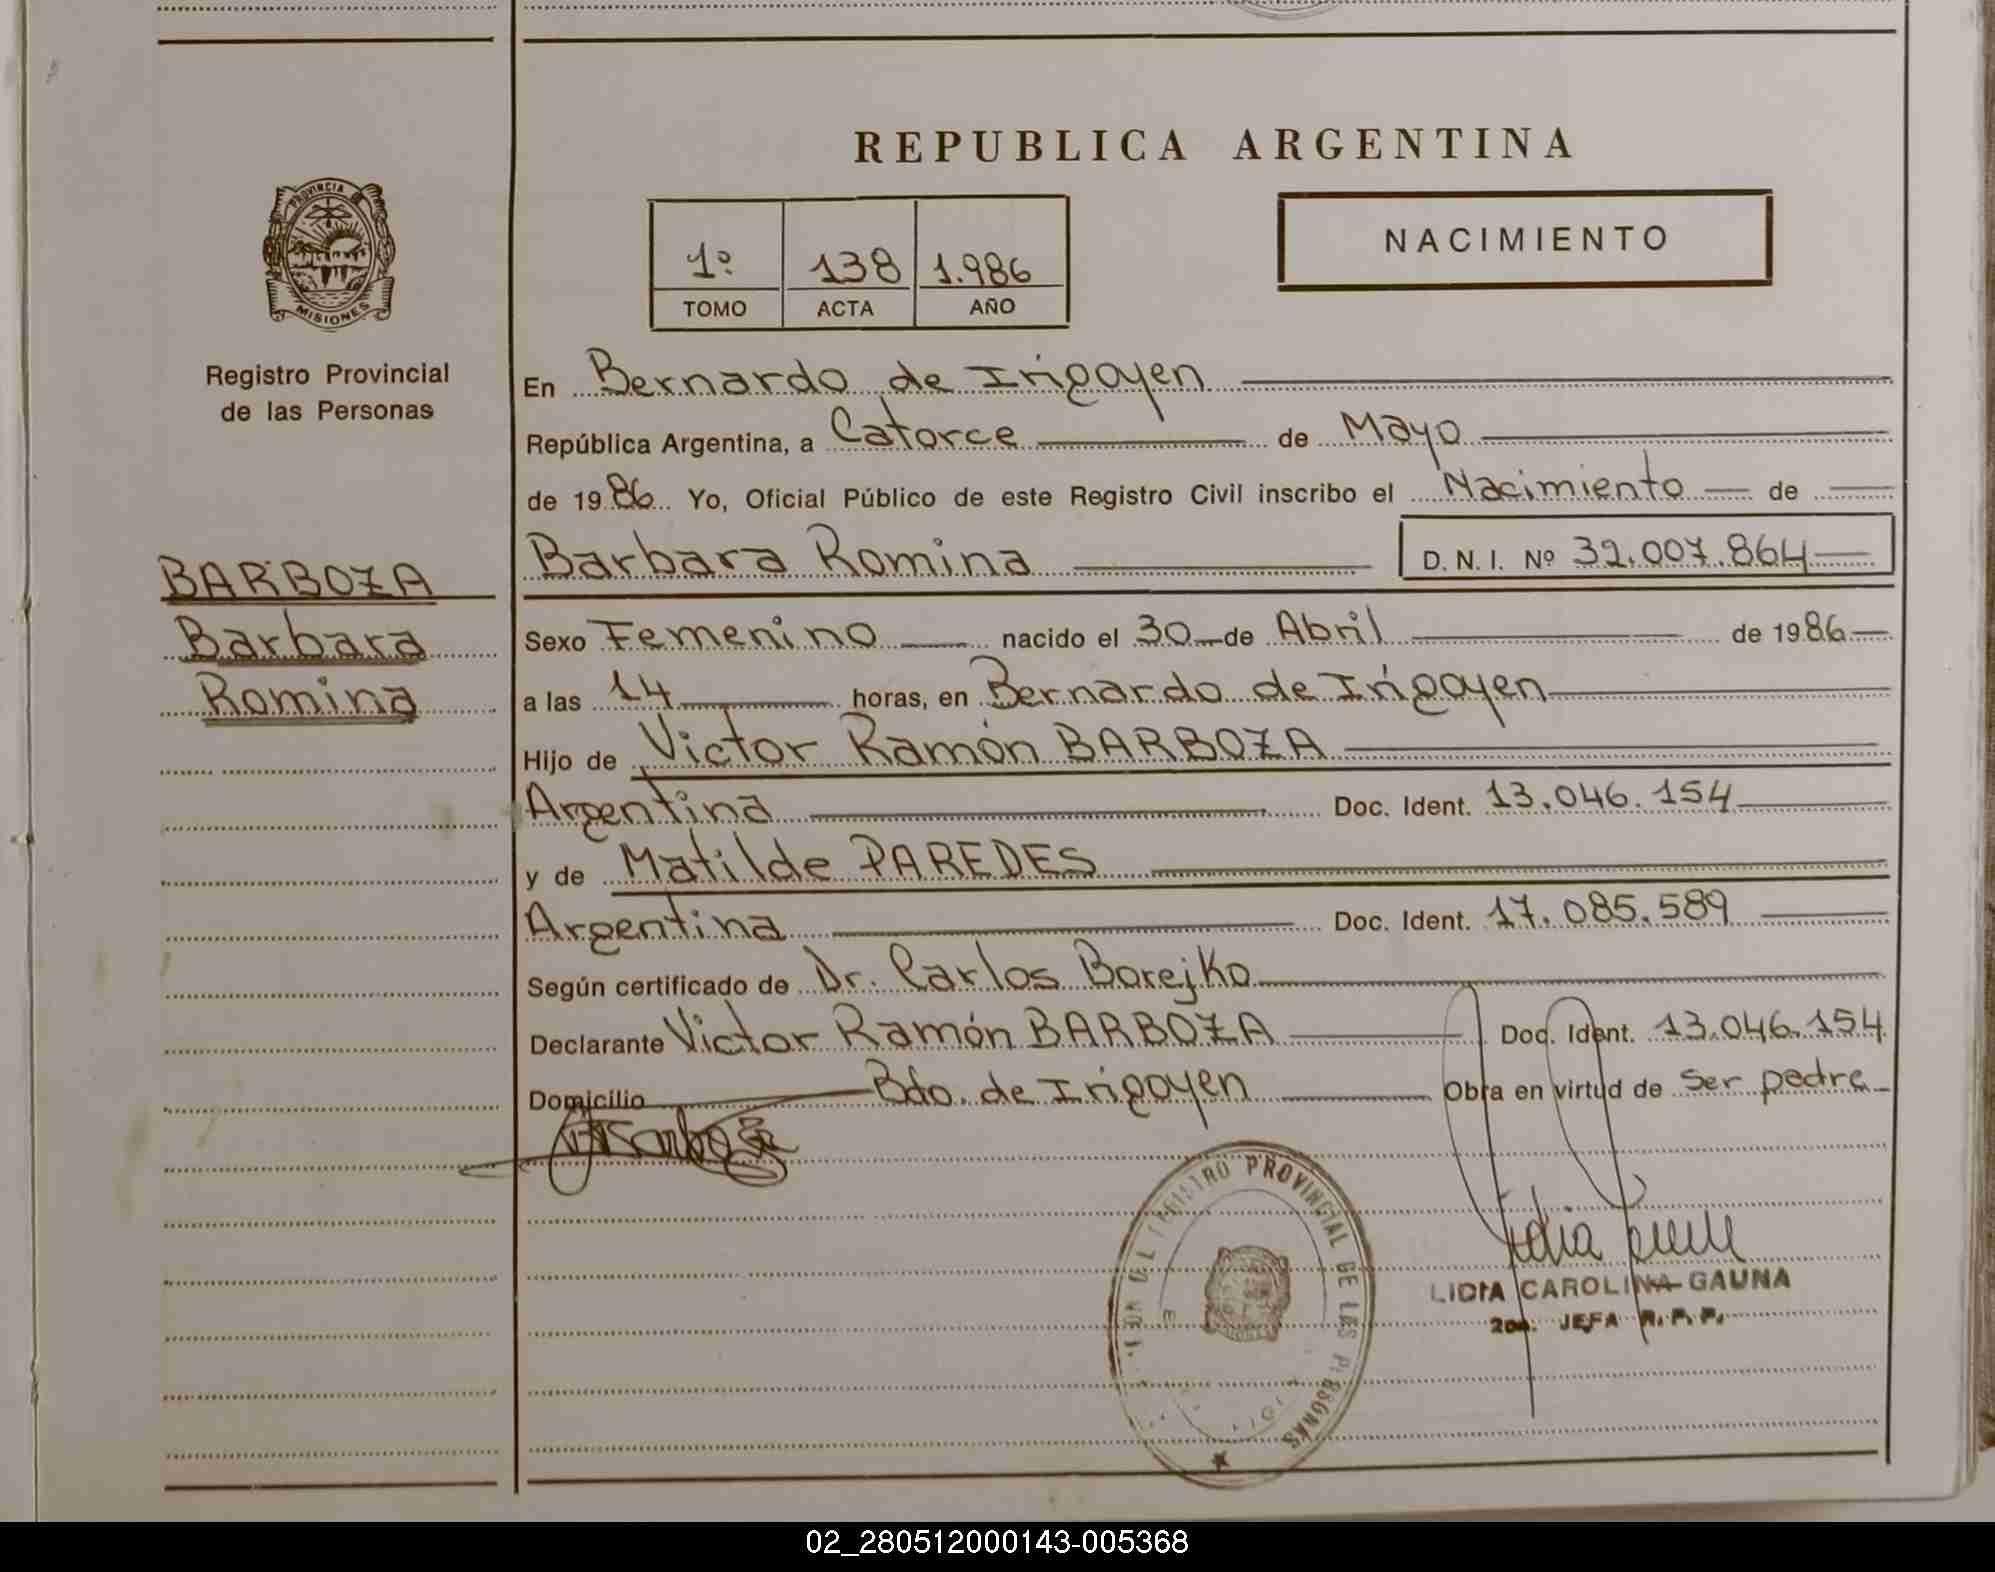 REPUBLICA ARGENTINA
PROVINCIA DE
MISIONES
Registro Provincial
de las Personas
NACIMIENTO
1º 138 1.986
TOMO ACTA AÑO
En Bernardo de Irigoyen
República Argentina, a Catorce de Mayo
de 1986 Yo, Oficial Público de este Registro Civil inscribo el Nacimiento de
BARBOZA
Barbara
Romina
Barbara Romina D. N. I. Nº 32.007.864
Sexo Femenino nacido el 30 de Abril de 1986
a las 14 horas, en Bernardo de Irigoyen
Hijo de Victor Ramón BARBOZA
Argentina Doc. Ident. 13.046.154
y de Matilde PAREDES
Argentina Doc. Ident. 17.085.589
Según certificado de Dr. Carlos Borejko
Declarante Victor Ramón BARBOZA Doc. Ident. 13.046.154
Domicilio Bdo. de Irigoyen Obra en virtud de ser padre
REGISTRO PROVINCIAL DE LAS PERSONAS
LIDIA CAROLINA GAUNA
JEFA R. P. P.
02_280512000143-005368